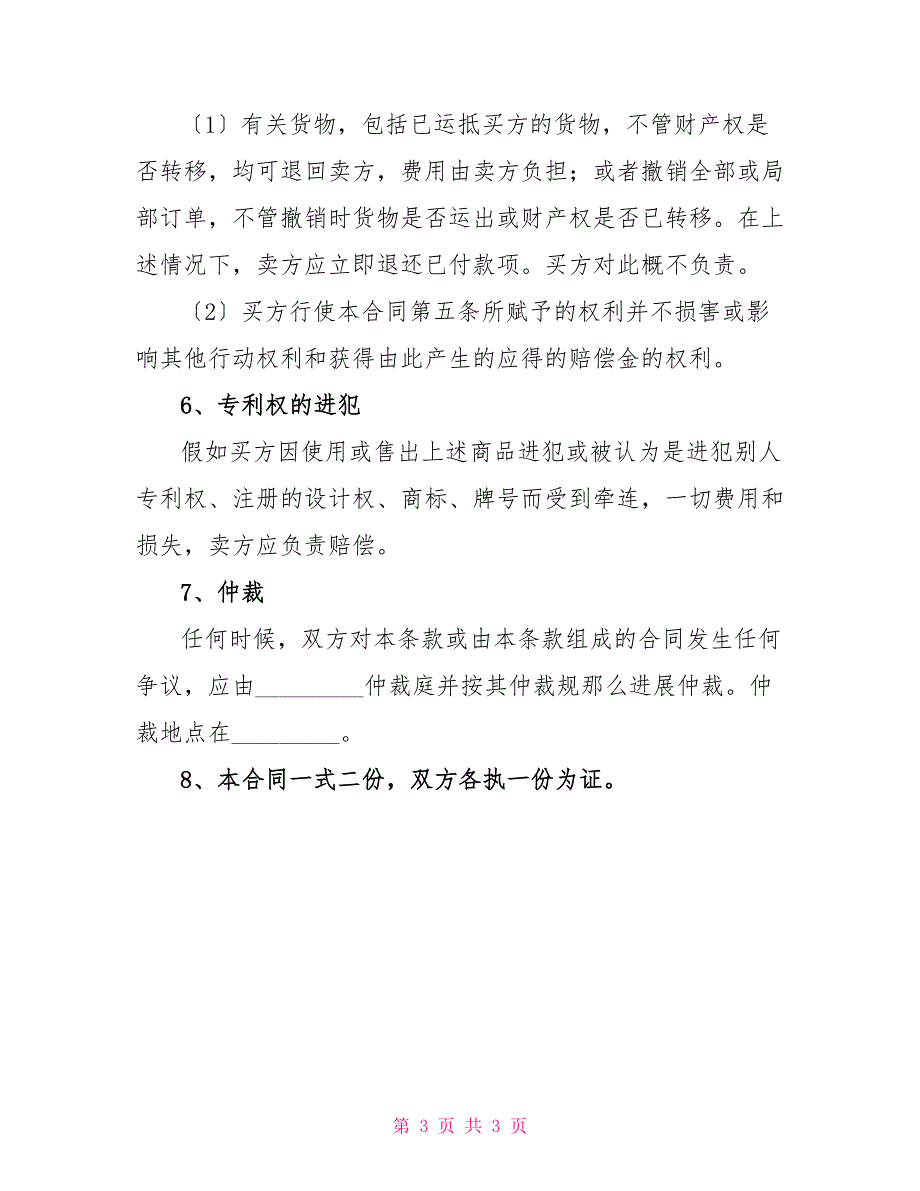 〔1〕有关货物，包括已运抵买方的货物，不管财产权是
否转移，均可退回卖方，费用由卖方负担；或者撤销全部或局
部订单，不管撤销时货物是否运出或财产权是否已转移。在上
述情况下，卖方应立即退还已付款项。买方对此概不负责。
〔2〕买方行使本合同第五条所赋予的权利并不损害或影
响其他行动权利和获得由此产生的应得的赔偿金的权利。
6、专利权的进犯
假如买方因使用或售出上述商品进犯或被认为是进犯别人
专利权、注册的设计权、商标、牌号而受到牵连，一切费用和
损失，卖方应负责赔偿。
7、仲裁
任何时候，双方对本条款或由本条款组成的合同发生任何
争议，应由_________仲裁庭并按其仲裁规那么进展仲裁。仲
裁地点在_________。
8、本合同一式二份，双方各执一份为证。
第 3 页 共 3 页